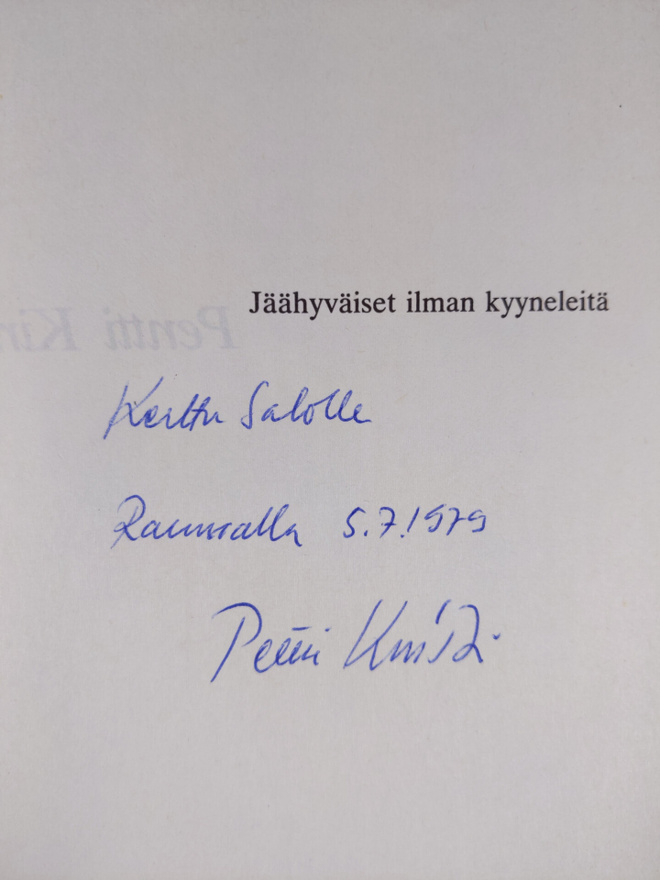 Jäähyväiset ilman kyyneleitä
Pentti Kir
Kerttu Salolle
Raumalla 5.7.1979
Pentti Kirstilä